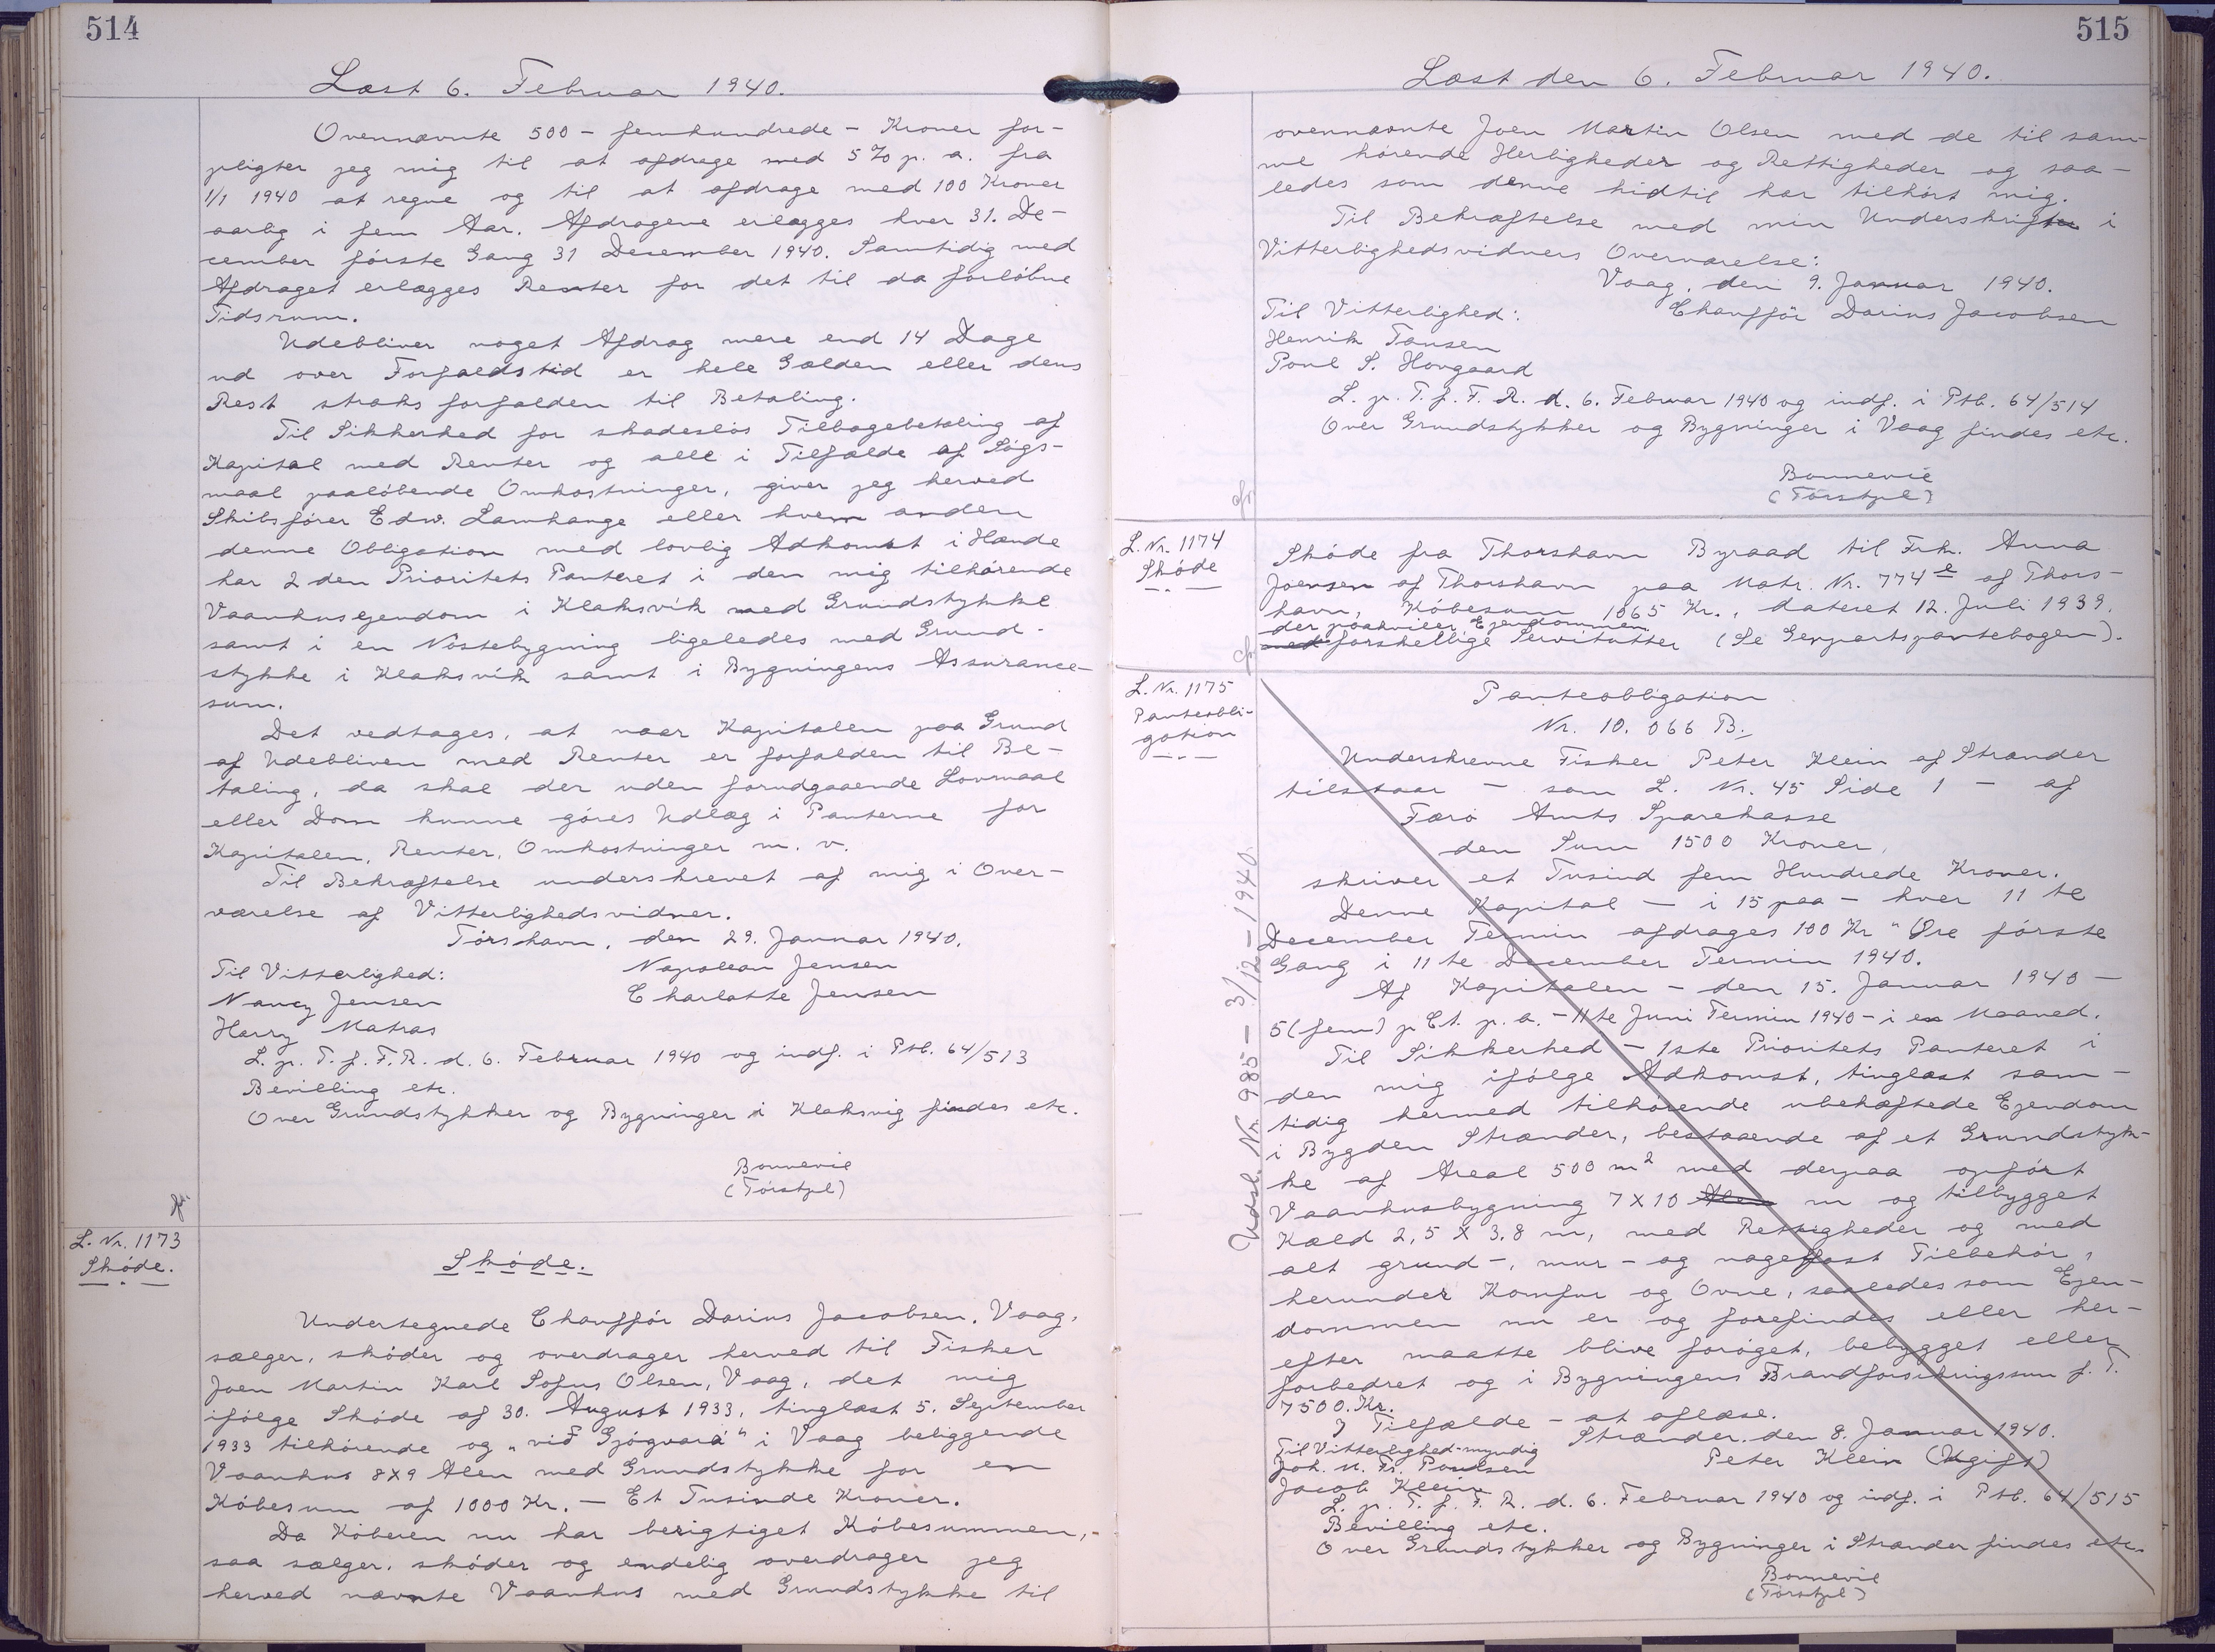 514
Læst 6. Februar 1940.
Ovennævnte 500 - femhundrede - Kroner for-
pligter jeg mig til at afdrage med 5% p. a. fra
1/1 1940 at regne og til at afdrage med 100 Kroner
aarlig i fem Aar. Afdragene erlægges hver 31. De-
cember förste Gang 31 Desember 1940. Samtidig med
Afdraget erlægges Renter for det til da forløbne
Tidsrum.
Udebliver noget Afdrag mere end 14 Dage
ud over Forfaldstid er hele Gælden eller dens
Rest straks forfalden til Betaling.
Til Sikkerhed for skadesløs Tilbagebetaling af
Kapital med Renter og alle i Tilfælde af Søgs-
maal paaløbende Omkostninger, giver jeg herved
Skibsfører Edw. Lamhauge eller hvem anden
denne Obligation med lovlig Adkomst i Hænde
har 2den Prioritets Panteret i den mig tilhørende
Vaanhusejendom i Klaksvík med Grundstykke
samt i en Nöstebygning ligeledes med Grund-
stykke i Klaksvík samt i Bygningens Assurance-
sum.
Det vedtages, at naar Kapitalen paa Grund
af Udebliven med Renter er forfalden til Be-
taling, da skal der uden forudgaaende Lovmaal
eller Dom kunne göres Udlæg i Panterne for
Kapitalen, Renter, Omkostninger m. v.
Til Bekræftelse underskrevet af mig i Over-
værelse af Vitterlighedsvidner.
Tórshavn, den 29. Januar 1940.
Til Vitterlighed: Napoleon Jensen
Nancy Jensen Charlotte Jensen
Harry Matras
L. p. T. f. F. R. d. 6. Februar 1940 og indf. i Ptb. 64/513
Bevilling etc.
Over Grundstykker og Bygninger i Klaksvig findes etc.
Bonnevie
(Tórstpl)
L. Nr. 1173
Sköde.
Sköde.
Undertegnede Chaufför Darius Jacobsen, Vaag,
sælger, sköder og overdrager herved til Fisker
Joen Martin Karl Sofus Olsen, Vaag, det mig
ifölge Sköde af 30. August 1933, tinglæst 5. September
1933 tilhörende og "við Gjógvará" i Vaag beliggende
Vaanhus 8x9 Alen med Grundstykke for en
Köbesum af 1000 Kr. - Et Tusinde Kroner.
Da Köberen nu har berigtiget Köbesummen,-
saa sælger, sköder og endelig overdrager jeg
herved nævnte Vaanhus med Grundstykke til
515
Læst den 6. Februar 1940.
ovennævnte Joen Martin Olsen med de til sam-
me hørende Herligheder og Rettigheder og saa-
ledes som denne hidtil har tilhørt mig.
Til Bekræftelse med min Underskrift i
Vitterlighedsvidners Overværelse:
Vaag, den 9. Januar 1940.
Til Vitterlighed: Chaufför Darius Jacobsen
Henrik Tausen
Poul S. Hovgaard
L. p. T. f. F. R. d. 6. Februar 1940 og indf. i Ptb. 64/514
Over Grundstykker og Bygninger i Vaag findes etc.
Bonnevie
(Tórstpl)
L. Nr. 1174
Sköde
Sköde fra Thorshavn Byraad til Frk. Anna
Joensen af Thorshavn paa Matr. Nr. 774e af Thors-
havn, Köbesum 1065 Kr., dateret 12. Juli 1939.
der paahviler Ejendommen
med forskellige Servitutter (Se Genpartspantebogen).
L. Nr. 1175
Panteobli-
gation
Panteobligation
Nr. 10. 066 B.
Underskrevne Fisker Peter Klein af Strænder
tilstaar - som L. Nr. 45 Side 1 - af
Færø Amts Sparekasse
den Sum 1500 Kroner,
skriver et Tusind fem Hundrede Kroner.
Denne Kapital - i 15 paa - hver 11 te
December Termin afdrages 100 Kr " Øre förste
Gang i 11te December Termin 1940.
Af Kapitalen - den 15. Januar 1940 -
5 (fem) p Ct. p. a. - 11te Juni Termin 1940 - i en Maaned.
Til Sikkerhed - 1ste Prioritets Panteret i
den mig ifölge Adkomst, tinglæst sam-
tidig hermed tilhørende ubehæftede Ejendom
i Bygden Strænder, bestaaende af et Grundstyk-
ke af Areal 500 m² med derpaa opført
Vaanhusbygning 7x10 Alen m og tilbygget
Kæld 2,5 x 3,8 m, med Rettigheder og med
alt grund-, mur- og nagelfast Tilbehör,
herunder Komfur og Ovne, saaledes som Ejen-
dommen nu er og forefindes eller her-
efter maatte blive forøget, bebygget eller
forbedret og i Bygningens Brandforsikringssum f. T.
7500. Kr.
I Tilfælde - at aflæse.
Strænder, den 8. Januar 1940.
Til Vitterlighed-myndig Peter Klein (Ugift)
Joh. M. Fr. Poulsen
Jacob Klein
L. p. T. f. F. R. d. 6. Februar 1940 og indf. i Ptb. 64/515
Bevilling etc.
Over Grundstykker og Bygninger i Strænder findes etc.
Bonnevie
(Tórstpl)
Udsl. Nr. 985 - 3/12 - 1940.